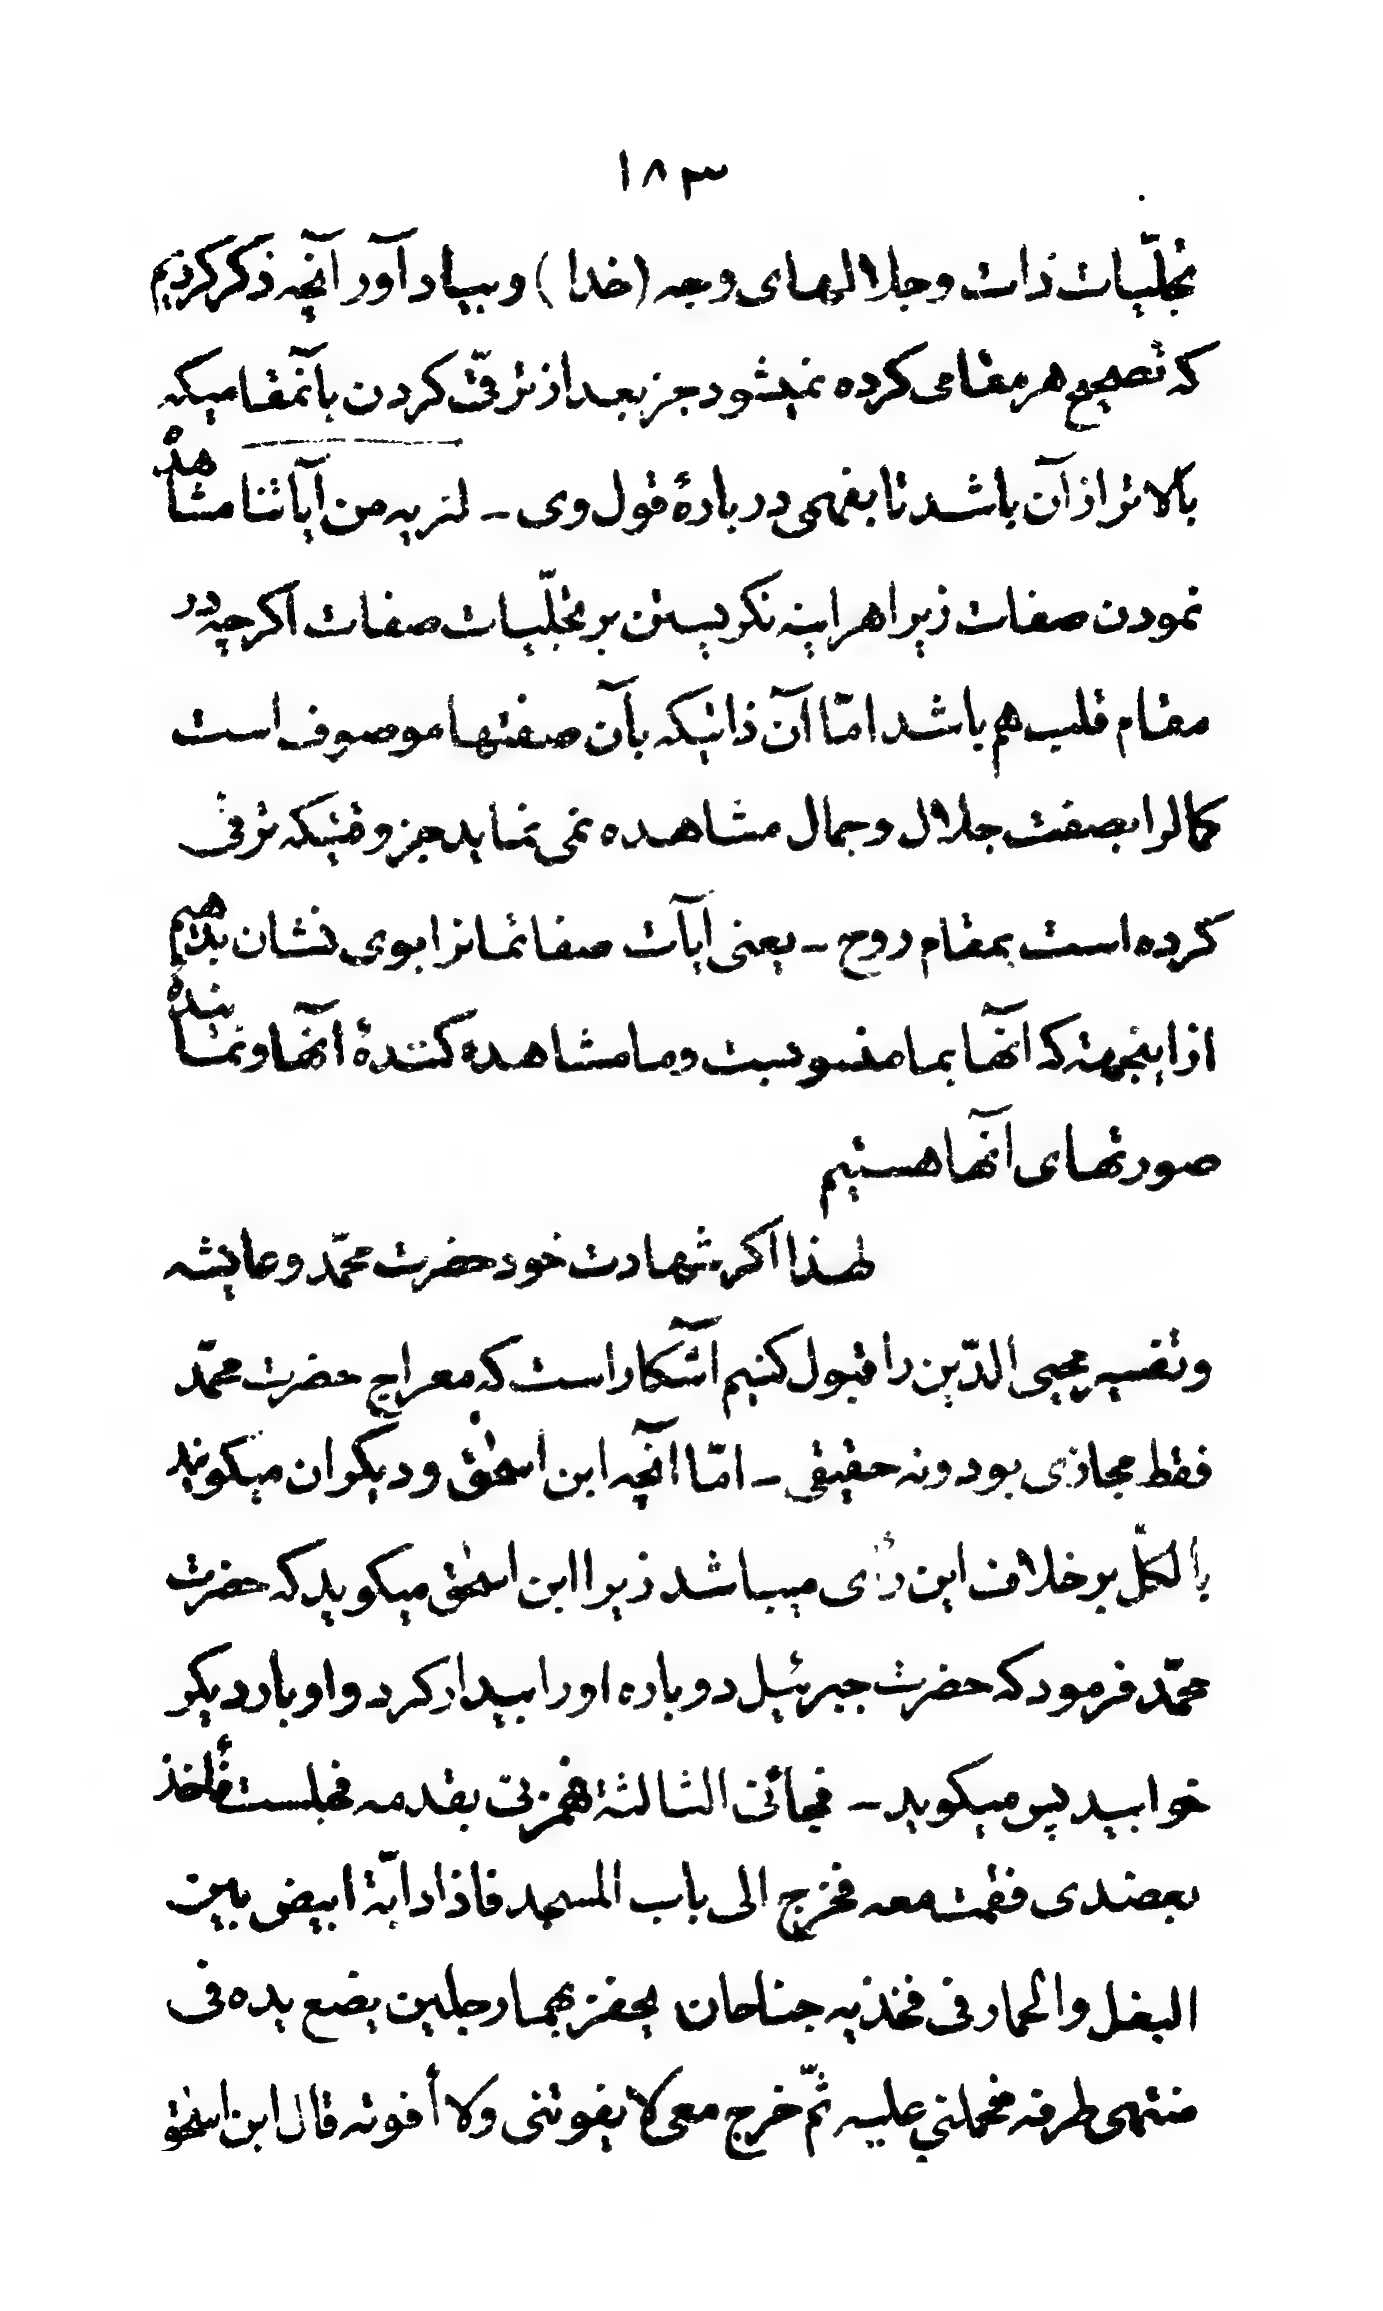 ۱۸۳
تجلّیات ذات و جلالهای وجه (خدا) و بیاد آور آنچه ذکر کردیم
که تصحیح هر مقامی کرده نمیشود جز بعد از ترقّی کردن بآنمقامیکه
بالاتر از آن باشد تا بفهمی در بارهٔ قول وی ـ لنریه من آیاتنا مشاهده
نمودن صفات زیرا هراینه نگریستن بر تجلّیات صفات اگرچه در
مقام قلب هم باشد امّا آن ذاتیکه بآن صفتها موصوف است
کمالرا بصفت جلال و جمال مشاهده نمی نماید جز وقتیکه ترقی
کرده است بمقام روح ـ یعنی آیات صفاتمانرا بوی نشان بدهیم
از اینجهته که آنها بما منسوبست و ما مشاهده کنندهٔ آنها و نمایندهٔ
صورتهای آنها هستیم
لهذا اگر شهادت خود حضرت محمّد و عایشه
و تفسیر محیی الدّین را قبول کنیم آشکار است که معراج حضرت محمّد
فقط مجازی بود و نه حقیقی ـ امّا آنچه ابن اسحٰق و دیگران میگویند
بالکلّ بر خلاف این رأی میباشد زیرا ابن اسحٰق میگوید که حضرت
محمّد فرمود که حضرت جبرئیل دوباره او را بیدار کرد و او بار دیگر
خوابید پس میگوید ـ فجائنی الثالثة فهمزنی بقدمه فجلست فأخذ
بعضدی فقمت معه فخرج الی باب المسجد فاذا دابّة ابیض بین
البغل والحمار فی فخذیه جناحان یحفز بهما رجلین یضع یده فی
منتهی طرفه فحملنی علیه ثمّ خرج معی لا یفوتنی ولا أفوته قال ابن اسحٰق